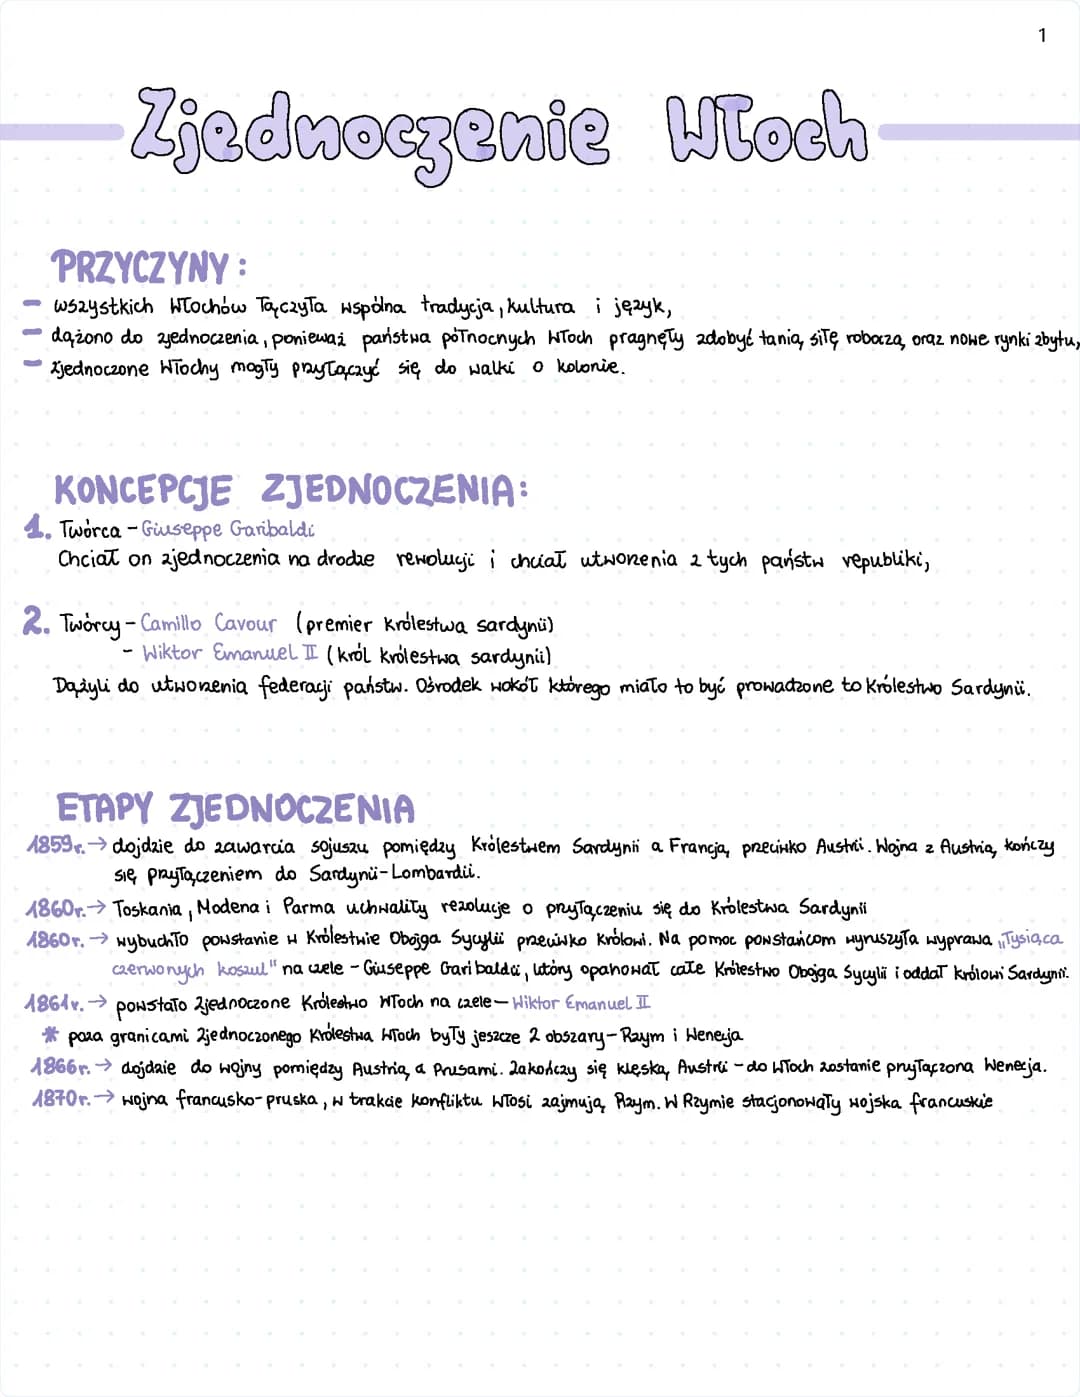 1
Zjednoczenie Włoch
PRZYCZYNY:
- wszystkich Włochów łączyła wspólna tradycja, kultura i język,
- dążono do zjednoczenia, ponieważ państwa północnych Włoch pragnęły zdobyć tanią siłę roboczą oraz nowe rynki zbytu,
- zjednoczone Włochy mogły przyłączyć się do walki o kolonie.
KONCEPCJE ZJEDNOCZENIA:
1. Twórca - Giuseppe Garibaldi
Chciał on zjednoczenia na drodze rewolucji i chciał utworzenia z tych państw republiki,
2. Twórcy - Camillo Cavour (premier królestwa sardynii)
- Wiktor Emanuel II (król królestwa sardynii)
Dążyli do utworzenia federacji państw. Ośrodek wokół którego miało to być prowadzone to Królestwo Sardynii.
ETAPY ZJEDNOCZENIA
1859r. → dojdzie do zawarcia sojuszu pomiędzy Królestwem Sardynii a Francją, przeciwko Austrii. Wojna z Austrią kończy
się przyłączeniem do Sardynii-Lombardii.
1860r. → Toskania, Modena i Parma uchwaliły rezolucje o przyłączeniu się do Królestwa Sardynii
1860r. → wybuchło powstanie w Królestwie Obojga Sycylii przeciwko królowi. Na pomoc powstańcom wyruszyła wyprawa „Tysiąca
czerwonych koszul" na czele - Giuseppe Garibaldii, który opanował całe Królestwo Obojga Sycylii i oddał królowi Sardynii.
1861r. → powstało zjednoczone Królestwo Włoch na czele - Wiktor Emanuel II
* poza granicami zjednoczonego Królestwa Włoch były jeszcze 2 obszary - Rzym i Wenecja
1866r. → dojdzie do wojny pomiędzy Austrią a Prusami. Zakończy się klęską Austrii - do Włoch zostanie przyłączona Wenecja.
1870r. → wojna francusko-pruska, w trakcie konfliktu Włosi zajmują Rzym. W Rzymie stacjonowały wojska francuskie